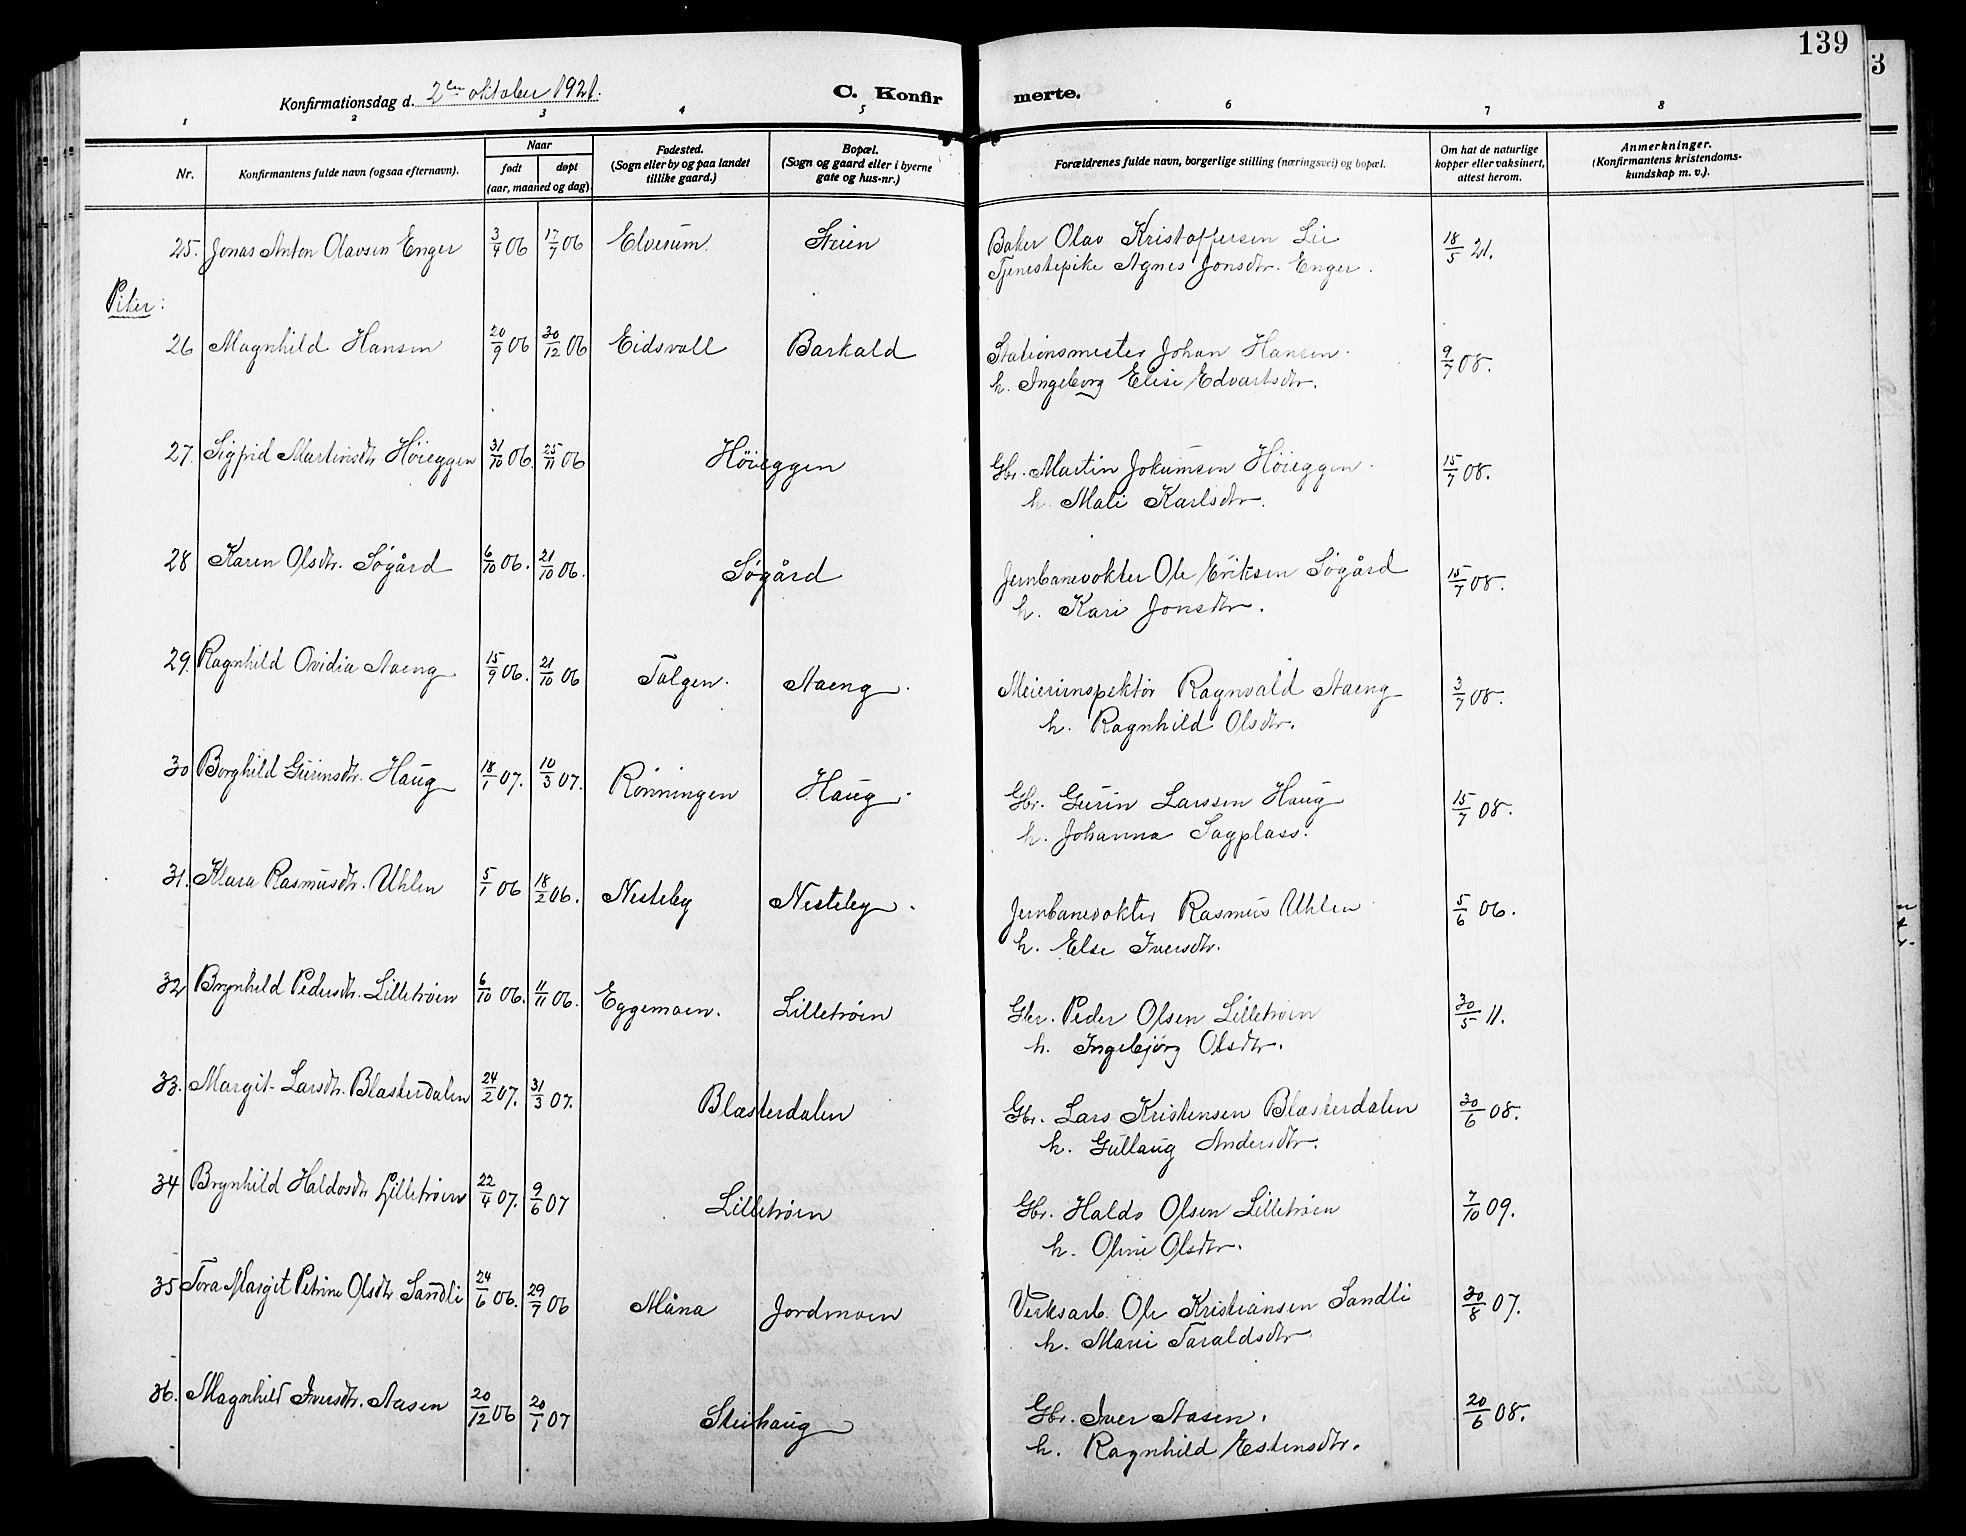 139
3
Konfirmationsdag d. 2den oktober 1921.
C. Konfirmerte.
1 2 3 4 5 6 7 8
Nr. Konfirmantens fulde navn (ogsaa efternavn). Naar født døpt (aar, maaned og dag) Fødested. (Sogn eller by og paa landet tillike gaard.) Bopæl. (Sogn og gaard eller i byerne gate og hus-nr.) Forældrenes fulde navn, borgerlige stilling (næringsvei) og bopæl. Om hat de naturlige kopper eller vaksinert, attest herom. Anmerkninger. (Konfirmantens kristendomskundskap m. v.).
25. Jonas Anton Olavsen Enger 3/4 06 17/7 06 Elverum. Steien Baker Olav Kristoffersen Lie 18/5 21.
Tjenestepike Agnes Jonsdtr. Enger.
Piker:
26 Magnhild Hansen 20/9 06 30/12 06 Eidsvall Barkald Stationsmester Johan Hansen. 9/7 08.
h. Ingeborg Elise Edvartsdtr.
27. Sigfrid Martinsdtr Höieggen 31/10 06. 25/11 06 Höieggen Gbr. Martin Jokumsen Höieggen. 15/7 08.
h. Mali Karlsdtr.
28 Karen Olsdtr. Søgård 6/10 06. 21/10 06. Søgård Jernbanevokter Ole Eriksen Søgård 15/7 08.
h. Kari Jonsdtr.
29. Ragnhild Ovidia Aaeng 15/9 06. 21/10 06 Tolgen. Aaeng. Meieriinspektör Ragnvald Aaeng 3/7 08.
h. Ragnhild Olsdtr.
30 Borghild Gurinsdtr. Haug 18/1 07. 10/3 07. Rönningen Haug. Gbr. Gurin Larssen Haug 15/7 08.
h. Johanna Sagplass.
31. Klara Rasmusdtr. Uhlen 5/1 06 18/2 06. Nesteby Nesteby. Jernbanevokter Rasmus Uhlen 5/6 06.
h. Else Iversdtr.
32 Brynhild Pedersdtr. Lilletröen 6/10 06. 11/11 06. Eggemoen. Lilletröen Gbr. Peder Olsen Lilletröen 30/5 11.
h. Ingebjörg Olsdtr.
33. Margit Larsdtr. Blæsterdalen 24/2 07. 31/3 07. Blæsterdalen Gbr. Lars Kristensen Blæsterdalen 30/6 08.
h. Gullaug Andersdtr.
34 Brynhild Haldosdtr Lilletröen 22/4 07. 9/6 07 Lilletröen Gbr. Haldo Olsen Lilletröen 7/10 09.
h. Oline Olsdtr.
35 Tora Margit Petrine Olsdtr Sandli 24/6 06. 29/7 06 Måna Jordmoen Verksarb. Ole Kristiansen Sandli 30/8 07.
h. Marie Taraldsdtr
36. Magnhild Iversdtr. Aasen 20/12 06 20/1 07 Steihaug Gbr. Iver Aasen. 20/6 08.
h. Ragnhild Estensdtr.